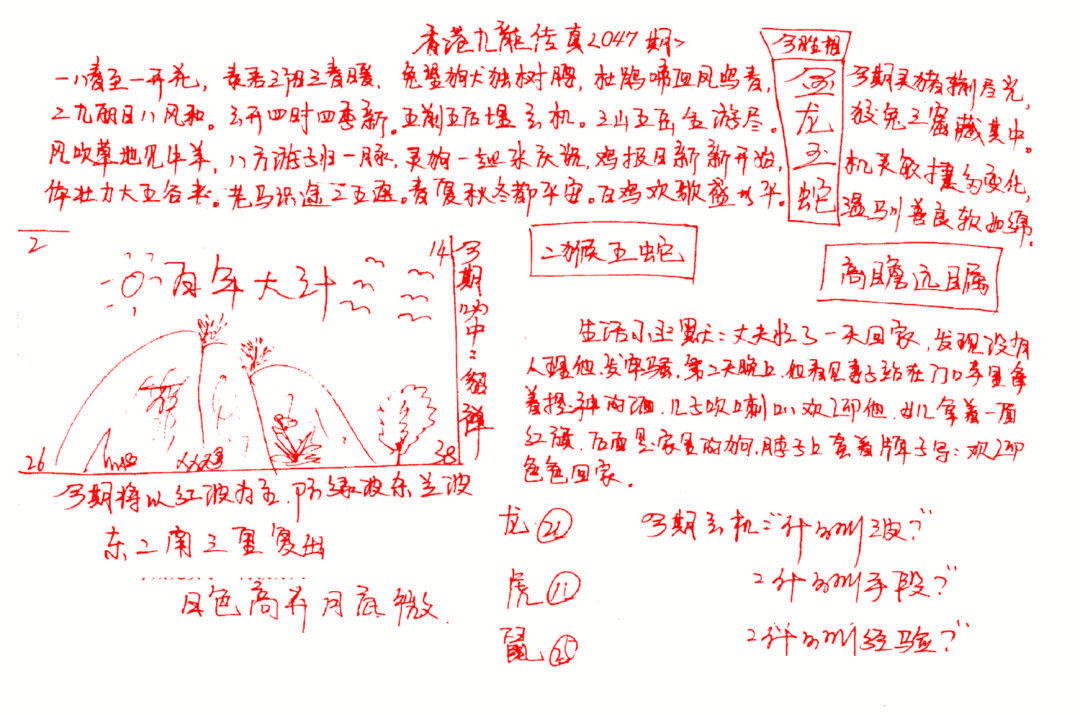 香港九龍传真2047期
一八春至一开花，春若三阳三春暖，兔望狗犬独树腰，杜鹃啼血凤鸣春，
二九朗日八风和。云开四时四季新。五前五后埋玄机。三山五岳全游尽。
风吹草地见牛羊，八方游子归一脉，灵狗一
鸡报日新新开始，
体壮力大五谷丰。老马识途三五遍。春夏秋冬都平安。百鸡欢歌盛太平。
今胜相
金龙玉蛇
今期灵猪捌尽光，
狡兔三窟藏其中。
机灵敏捷多变化，
温驯善良软如绵。
2
14
26
38
百年大计
今期内中二组弹
二猴五蛇
高瞻远瞩
生活小幽默：丈夫忙了一天回家，发现没有
人理他，发牢骚。第二天晚上，他看见妻子站在门口手里拿
着提神的酒，儿子吹喇叭欢迎他，女儿拿着一面
红旗，后面是家里的狗，脖子上套着牌子写：欢迎
爸爸回家。
今期将以红波为主，防绿波杀兰波
东二南三里复出
日色高升月底微
龙 21
虎 11
鼠 25
今期玄机："什么叫波？"
"什么叫手段？"
"什么叫经验？"